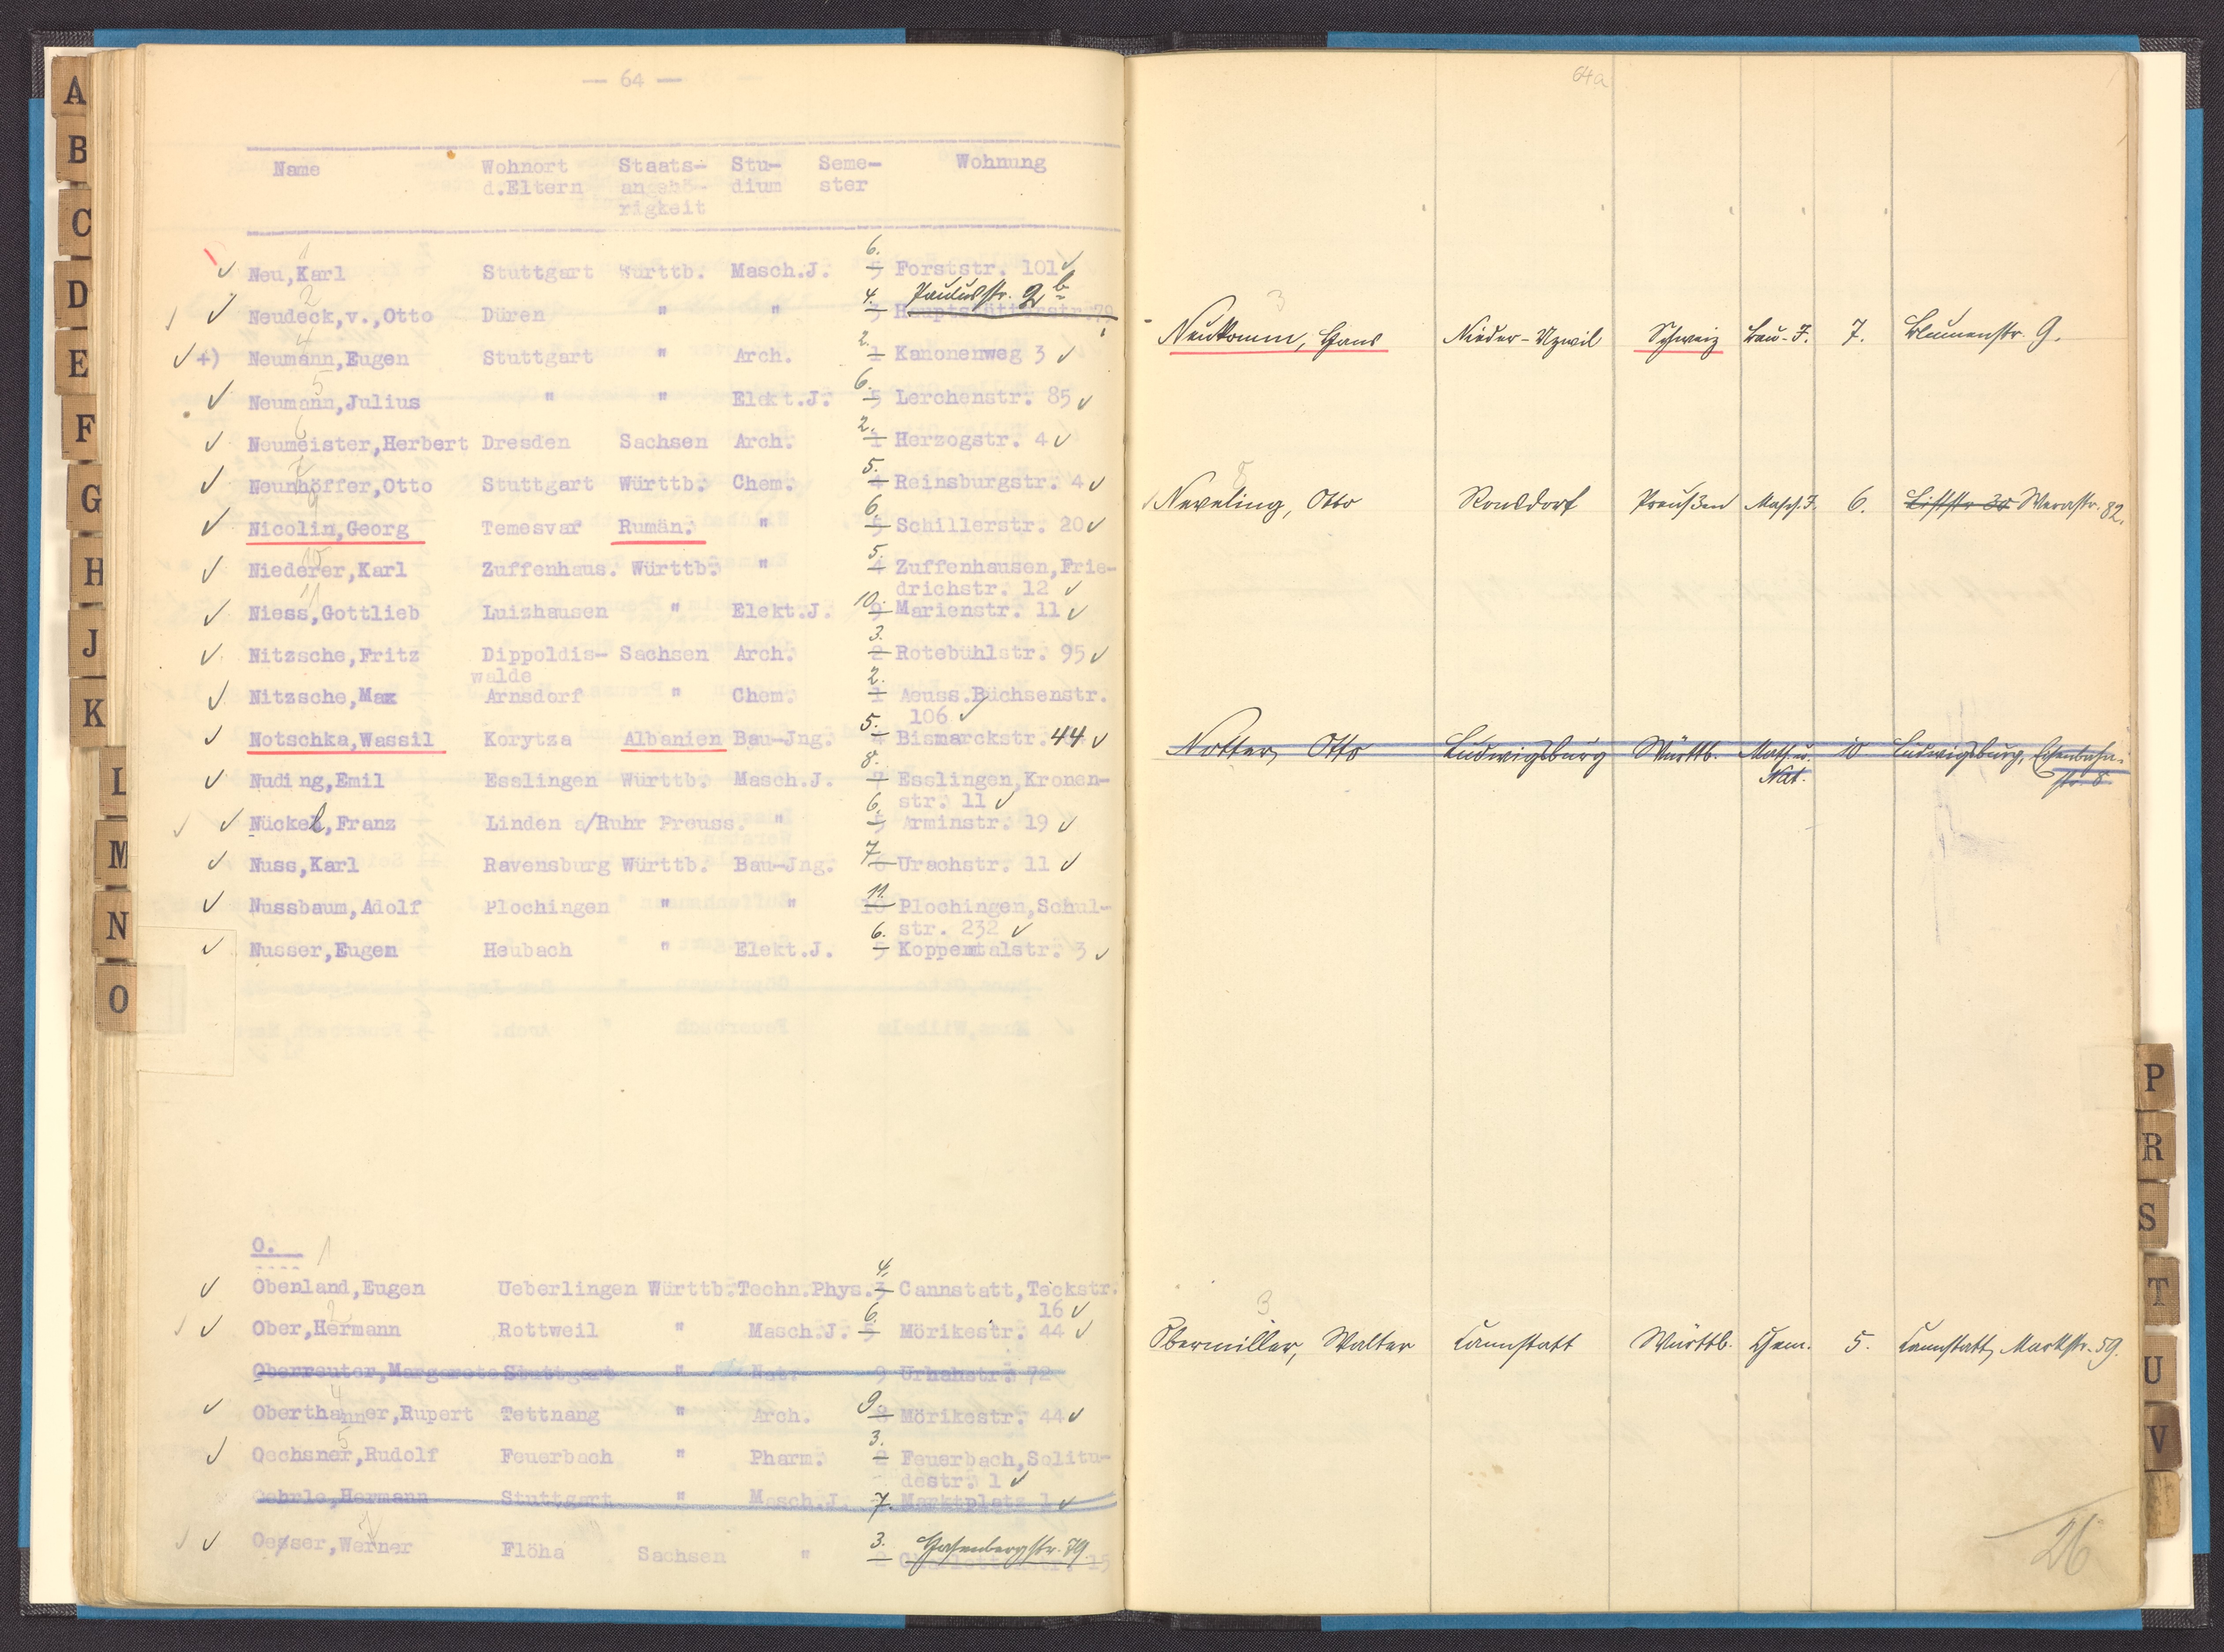 A
B
C
D
E
F
G
H
J
K
L
M
N
O
— 64 —
Name Wohnort Staats- Stu- Seme- Wohnung
d.Eltern angehö- dium ster
rigkeit
1
6.
Neu,Karl Stuttgart Württb. Masch.J. 5 Forststr. 101
2 4. Paulusstr. 2b
Neudeck,v.,Otto Düren " " 3 Hauptstätterstr.79
4 2.
+) Neumann,Eugen Stuttgart " Arch. 1 Kanonenweg 3
5 6.
Neumann,Julius " " Elekt.J. 5 Lerchenstr. 85
6 2.
Neumeister,Herbert Dresden Sachsen Arch. 1 Herzogstr. 4
7 5.
Neunhöffer,Otto Stuttgart Württb. Chem. 4 Reinsburgstr. 4
9 6.
Nicolin,Georg Temesvar Rumän. " 5 Schillerstr. 20
10 5.
Niederer,Karl Zuffenhaus. Württb. " 4 Zuffenhausen,Frie-
drichstr. 12
11 10.
Niess,Gottlieb Luizhausen " Elekt.J. 9 Marienstr. 11
3.
Nitzsche,Fritz Dippoldis- Sachsen Arch. 2 Rotebühlstr. 95
walde 2.
Nitzsche,Max Arnsdorf " Chem. 1 Aeuss.Büchsenstr.
106
5.
Notschka,Wassil Korytza Albanien Bau-Jng. 4 Bismarckstr.44
8.
Nuding,Emil Esslingen Württb. Masch.J. 7 Esslingen,Kronen-
str. 11
6.
Nückel,Franz Linden a/Ruhr Preuss. " 5 Arminstr. 19
7
Nuss,Karl Ravensburg Württb. Bau-Jng. 6 Urachstr. 11
11
Nussbaum,Adolf Plochingen " " 10 Plochingen,Schul-
str. 232
6.
Nusser,Eugen Heubach " Elekt.J. 5 Koppentalstr. 3
O. 1
4.
Obenland,Eugen Ueberlingen Württb. Techn.Phys. 3 Cannstatt,Teckstr.
16
2 6.
Ober,Hermann Rottweil " Masch.J. 5 Mörikestr. 44
Oberreuter,Margarete Stuttgart " Nat. 9 Urbanstr. 72
4 9.
Oberthanner,Rupert Tettnang " Arch. 8 Mörikestr. 44
5 3.
Oechsner,Rudolf Feuerbach " Pharm. 2 Feuerbach,Solitu-
destr. 1
Oehrle,Hermann Stuttgart " Masch.J. 7. Marktplatz 1
7 3. Hasenbergstr. 79
Oesser,Werner Flöha Sachsen " 2 Charlottenstr. 15
64a
3
Neukomm, Hans Nieder-Uzwil Schweiz Bau-J. 7. Blumenstr. 9.
8
Neveling, Otto Ronsdorf Preußen Masch.J. 6. Liststr. 30 Werastr. 82.
Notter, Otto Ludwigsburg Württb. Math.u. 10 Ludwigsburg, Eisenbahn-
Nat. str. 8
3
Obermiller, Walter Cannstatt Württb. Chem. 5. Cannstatt, Marktstr. 59.
26
P
R
S
T
U
V